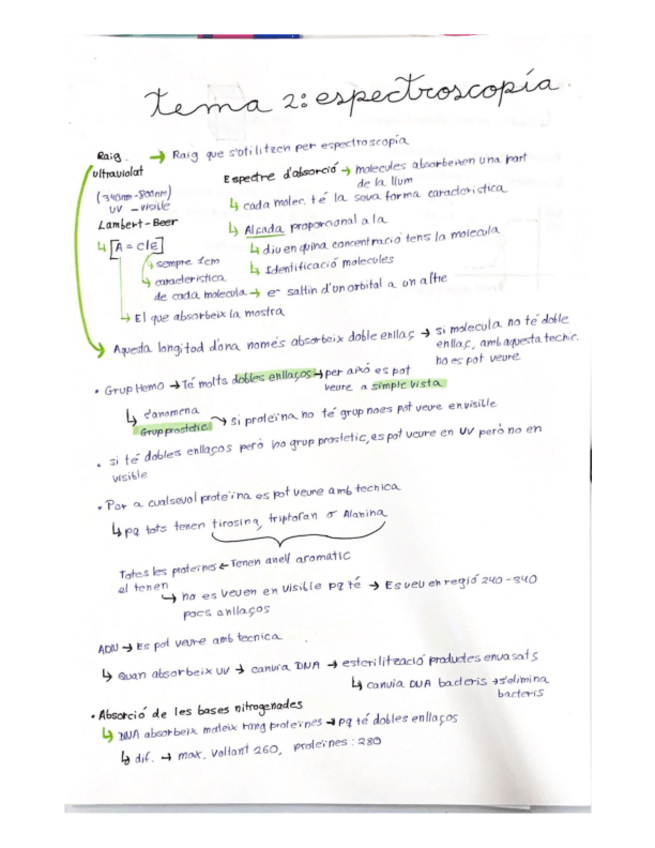 tema 2: espectroscopía
Raig ultraviolat → Raig que s'utilitzen per espectroscopia
(340nm-800nm)
UV - visible
Lambert-Beer
↳ [A = clε]
↳ sempre 1cm
↳ característica
de cada molecula → e⁻ saltin d'un orbital a un altre
↳ El que absorbeix la mostra
Espectre d'absorció → molecules absorbeixen una part
de la llum
↳ cada molec. té la sova forma característica
↳ Alçada proporcional a la
↳ diu en quina concentració tens la molecula
↳ Identificació molecules
Aquesta longitod d'ona només absorbeix doble enllaç → si molecula no té doble
enllaç, amb aquesta tecnic.
no es pot veure
• Grup Hemo → Té molts dobles enllaços → per això es pot
veure a simple vista
↳ s'anomena
Grup prostetic → si proteïna no té grup no es pot veure en visible
• si té dobles enllaços però no grup prostetic, es pot veure en UV però no en
visible
• Par a cualsevol proteïna es pot veure amb tecnica
↳ pq tots tenen tirosina, triptofan o Alanina
Totes les proteines ← Tenen anell aromàtic
el tenen
↳ no es veuen en visible pq té → Es veu en regió 240-340
pocs enllaços
ADN → Es pot veure amb tecnica
↳ Quan absorbeix UV → canvia DNA → esterilització productes envasats
↳ canvia DNA bacteris → s'elimina
bacteris
• Absorció de les bases nitrogenades
↳ DNA absorbeix mateix rang proteïnes → pq té dobles enllaços
↳ dif. → max. voltant 260, proteïnes: 280